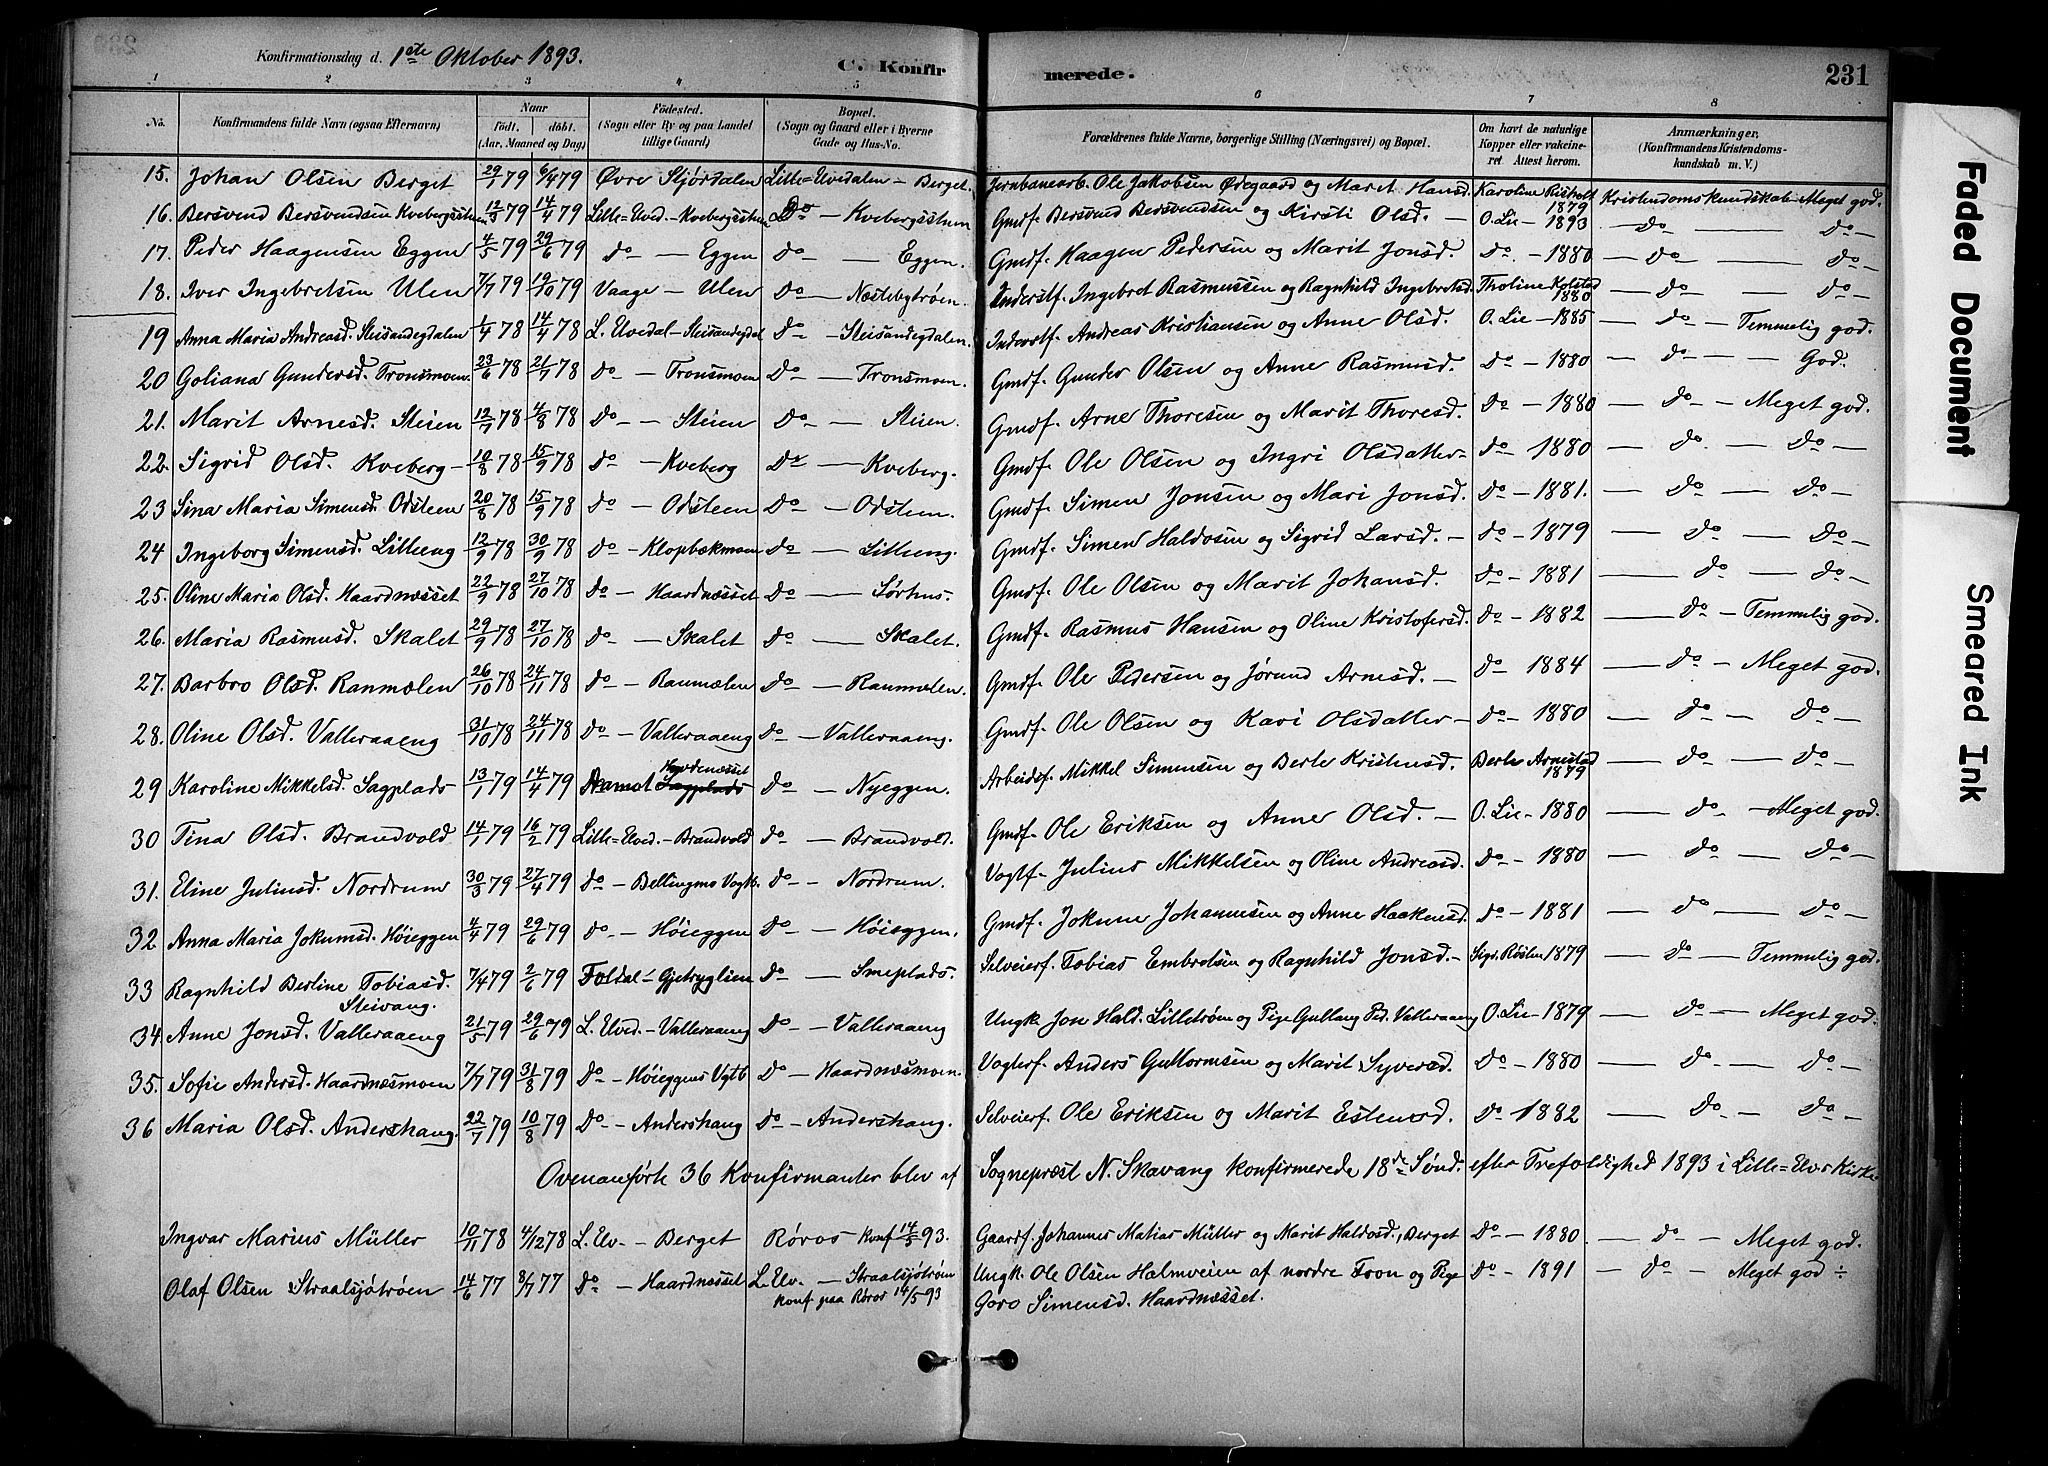 Konfirmationsdag d. 1ste Oktober 1893. C. Konfir merede. 231
1 2 3 4 5 6 7 8
No. Konfirmandens fulde Navn (ogsaa Efternavn) Naar födt. döbt. (Aar, Maaned og Dag) Födested. (Sogn eller By og paa Landet tillige Gaard) Bopæl. (Sogn og Gaard eller i Byerne Gade og Hus-No. Forældrenes fulde Navne, borgerlige Stilling (Næringsvei) og Bopæl. Om havt de naturlige Kopper eller vakcineret. Attest herom. Anmærkninger. (Konfirmandens Kristendomskundskab m. V.)
15. Johan Olsen Berget 29/1 79 6/4 79 Øvre Stjørdalen Lille=Elvedalen - Berget. Jernbanearb. Ole Jakobsen Ødegaard og Maret Hansd. Karoline Risholt 1879 Kristendomskundskab Meget god.
16. Bersvend Bersvendsen Kvebergsshuen 12/3 79 14/4 79 Lille=Elved. - Kvebergsshuen Do - Kvebergsshuen Gmdf. Bersvend Bersvendsen og Kirsti Olsd. - O. Lie - 1893 - do - do -
17. Peder Haagensen Eggen 4/5 79 29/6 79 do - Eggen do - Eggen. Gmdf. Haagen Pedersen og Marit Jonsd. do - 1880 - do - do -
18. Iver Ingebretsen Ulen 7/7 79 19/10 79 Vaage - Ulen do - Næstebytrøen. Inderstf. Ingebret Rasmussen og Ragnhild Ingebretsd. Tholine Kolstad 1880 - do - do -
19 Anna Maria Andreasd. Steisandegdalen 1/4 78 14/4 78 L. Elvedal - Steisandegdal do - Steisandegdalen. Inderstf. Andreas Kristiansen og Anne Olsd. O. Lie - 1885 - do - Temmelig god.
20 Goliana Gundersd. Tronsmoen 23/6 78 21/7 78 do - Tronsmoen do - Tronsmoen. Gmdf. Gunder Olsen og Anne Rasmusd. do - 1880 - do - God.
21. Marit Arnesd. Steien 12/7 78 4/8 78 do - Steien do - Steien. Gmdf. Arne Thoresen og Marit Thoresd. do - 1880 - do - Meget god.
22. Sigrid Olsd. Kveberg - 10/8 78 15/9 78 do - Kveberg do - Kveberg. Gmdf. Ole Olsen og Ingri Olsdatter - do - 1880 - do - do -
23 Sina Maria Simensd. Odsteen 20/8 78 15/9 78 do - Odsteen do - Odsteen. Gmdf. Simen Jonsen og Mari Jonsd. do - 1881. - do - do -
24 Ingeborg Simensd. Lilleeng 12/9 78 30/9 78 do - Klopbækmoen do - Lilleeng. Gmdf. Simen Haldosen og Sigrid Larsd. - do - 1879 - do - do -
25. Oline Maria Olsd. Haardnæsset 22/9 78 27/10 78 do - Haardnæsset do - Sørhus. Gmdf. Ole Olsen og Marit Johansd. do - 1881 - do - do -
26. Maria Rasmusd. Skalet 29/9 78 27/10 78 do - Skalet do - Skalet. Gmdf. Rasmus Hansen og Oline Kristofersd. do - 1882 - do - Temmelig god.
27. Barbro Olsd. Ranmælen 26/10 78 24/11 78 do - Ranmælen do - Ranmælen. Gmdf. Ole Pedersen og Jørund Arnesd. - do - 1884 - do - Meget god.
28. Oline Olsd. Valleraaeng 31/10 78 24/11 78 do - Valleraaeng do - Valleraaeng. Gmdf. Ole Olsen og Kari Olsdatter - do - 1880 - do - do -
29 Karoline Mikkelsd. Sagplads 13/1 79 14/4 79 Aamot Sagplads do - Nyeggen. Arbeidsf. Mikkel Simensen og Berte Kristensd. Berte Arnestad 1879 - do - do -
30 Tina Olsd. Brandvold 14/1 79 16/2 79 Lille=Elved. - Brandvold do - Brandvold. Gmdf. Ole Eriksen og Anne Olsd. - O. Lie - 1880 - do - Meget god.
31. Eline Juliusd. Nordrum 30/3 79 27/4 79 do - Bellingmo Vogtb. do - Nordrum. Vogtf. Julius Mikkelsen og Oline Andreasd. do - 1880 - do - do -
32 Anna Maria Jokumsd. Høieggen 4/4 79 29/6 79 do - Høieggen do - Høieggen. Gmdf. Jokume Johannesen og Anne Haakensd. do - 1881 - do - do -
33 Ragnhild Berline Tobiasd. Steivang. 7/4 79 2/6 79 Foldal - Gjetryglien do - Smeplads. Selveierf. Tobias Embretsen og Ragnhild Jonsd. - 1879 - do - Temmelig god.
34. Anne Jonsd. Valleraaeng 21/5 79 29/6 79 L. Elved. - Valleraaeng do - Valleraaeng Ungk. Jon Hald. Lilletrøen og Pige Gullaug Ped. Valleraaeng O. Lie - 1879 - do - Meget god.
35. Sofie Andersd. Haardnæsmoen 7/7 79 31/8 79 do - Høieggens Vgtb do - Haardnæsmoen. Vogterf. Anders Guttormsen og Marit Syversd. do - 1880 - do - do -
36 Maria Olsd. Andershaug. 22/7 79 10/8 79 do - Andershaug do - Andershaug. Selveierf. Ole Eriksen og Marit Estensd. do 1882 - do - do -
Ovenanførte 36 Konfirmanter blev af Sogneprest N. Skavang konfirmerede 18de Sønd. efter Trefoldighed 1893 i Lille=Elvs Kirke
Ingvar Marius Müller 10/11 78 4/12 78 L. Elv. - Berget Røros Konf 14/5 93. Gaardf. Johannes Matias Müller og Marit Haldosd., Berget do - 1880. - do - Meget god.
Olaf Olsen Straalsjøtrøen 14/6 77 8/7 77 do - Haardnæsset L. Elv. - Straalsjøtrøen konf paa Røros 14/5 93 Ungk. Ole Olsen Halmveien af nordre Fron og Pige Goro Simensd. Haardnæsset. do - 1891 - do - Meget god ÷
Faded Document
Smeared Ink